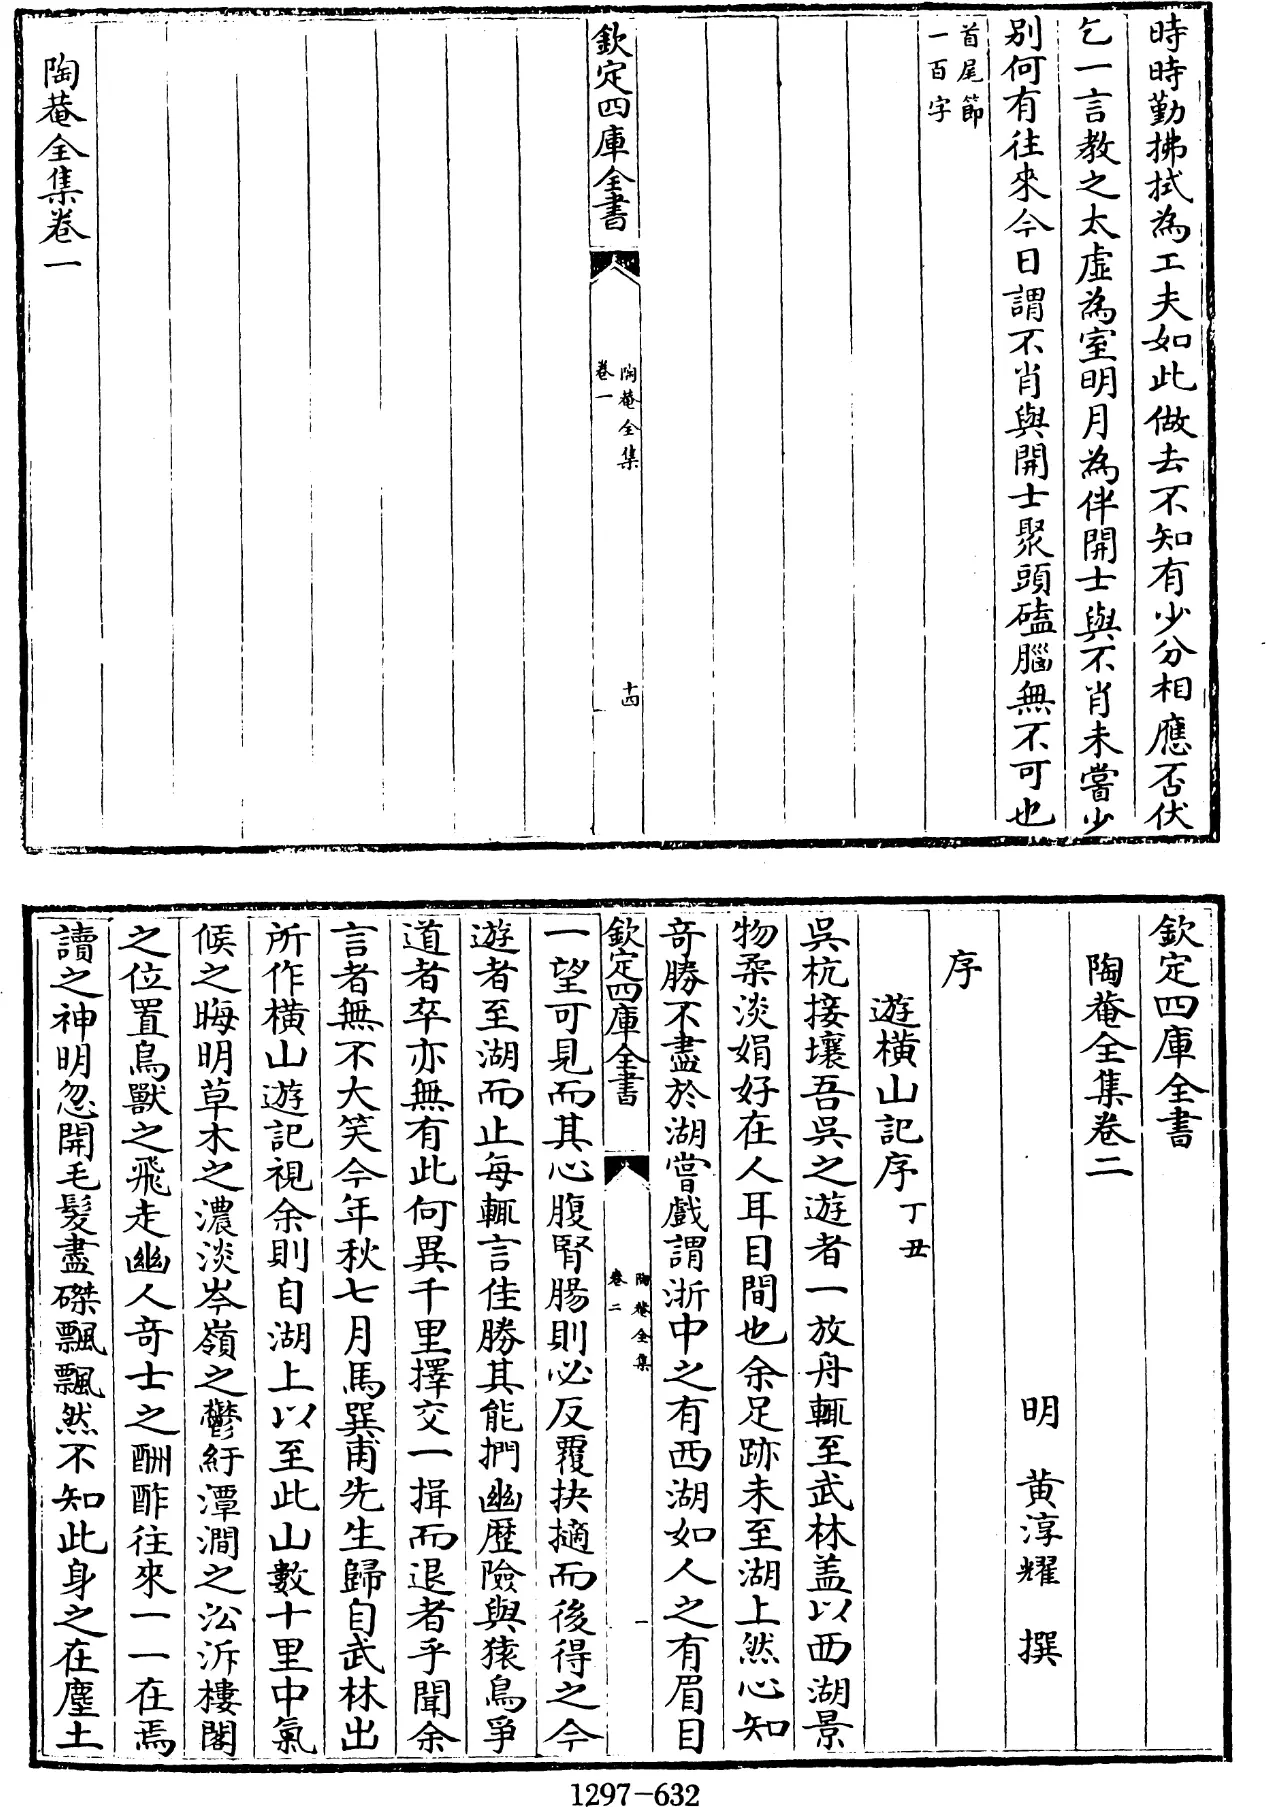 時時勤拂拭為工夫如此做去不知有少分相應否伏
乞一言教之太虛為室明月為伴開士與不肖未嘗少
別何有往來今日謂不肖與開士聚頭磕腦無不可也
首尾節
一百字
欽定四庫全書
陶菴全集
卷一
十四
陶菴全集卷一
欽定四庫全書
陶菴全集卷二
明 黃淳耀 撰
序
遊橫山記序丁丑
吳杭接壤吾吳之遊者一放舟輒至武林盖以西湖景
物柔淡娟好在人耳目間也余足跡未至湖上然心知
奇勝不盡於湖嘗戲謂浙中之有西湖如人之有眉目
欽定四庫全書
陶菴全集
卷二
一
一望可見而其心腹腎腸則必反覆抉擿而後得之今
遊者至湖而止每輒言佳勝其能捫幽歷險與猿鳥爭
道者卒亦無有此何異千里擇交一揖而退者乎聞余
言者無不大笑今年秋七月馬巽甫先生歸自武林出
所作橫山遊記視余則自湖上以至此山數十里中氣
候之晦明草木之濃淡岑嶺之鬱紆潭澗之㳂泝樓閣
之位置鳥獸之飛走幽人奇士之酬酢往來一一在焉
讀之神明忽開毛髮盡磔飄飄然不知此身之在塵土
1297-632